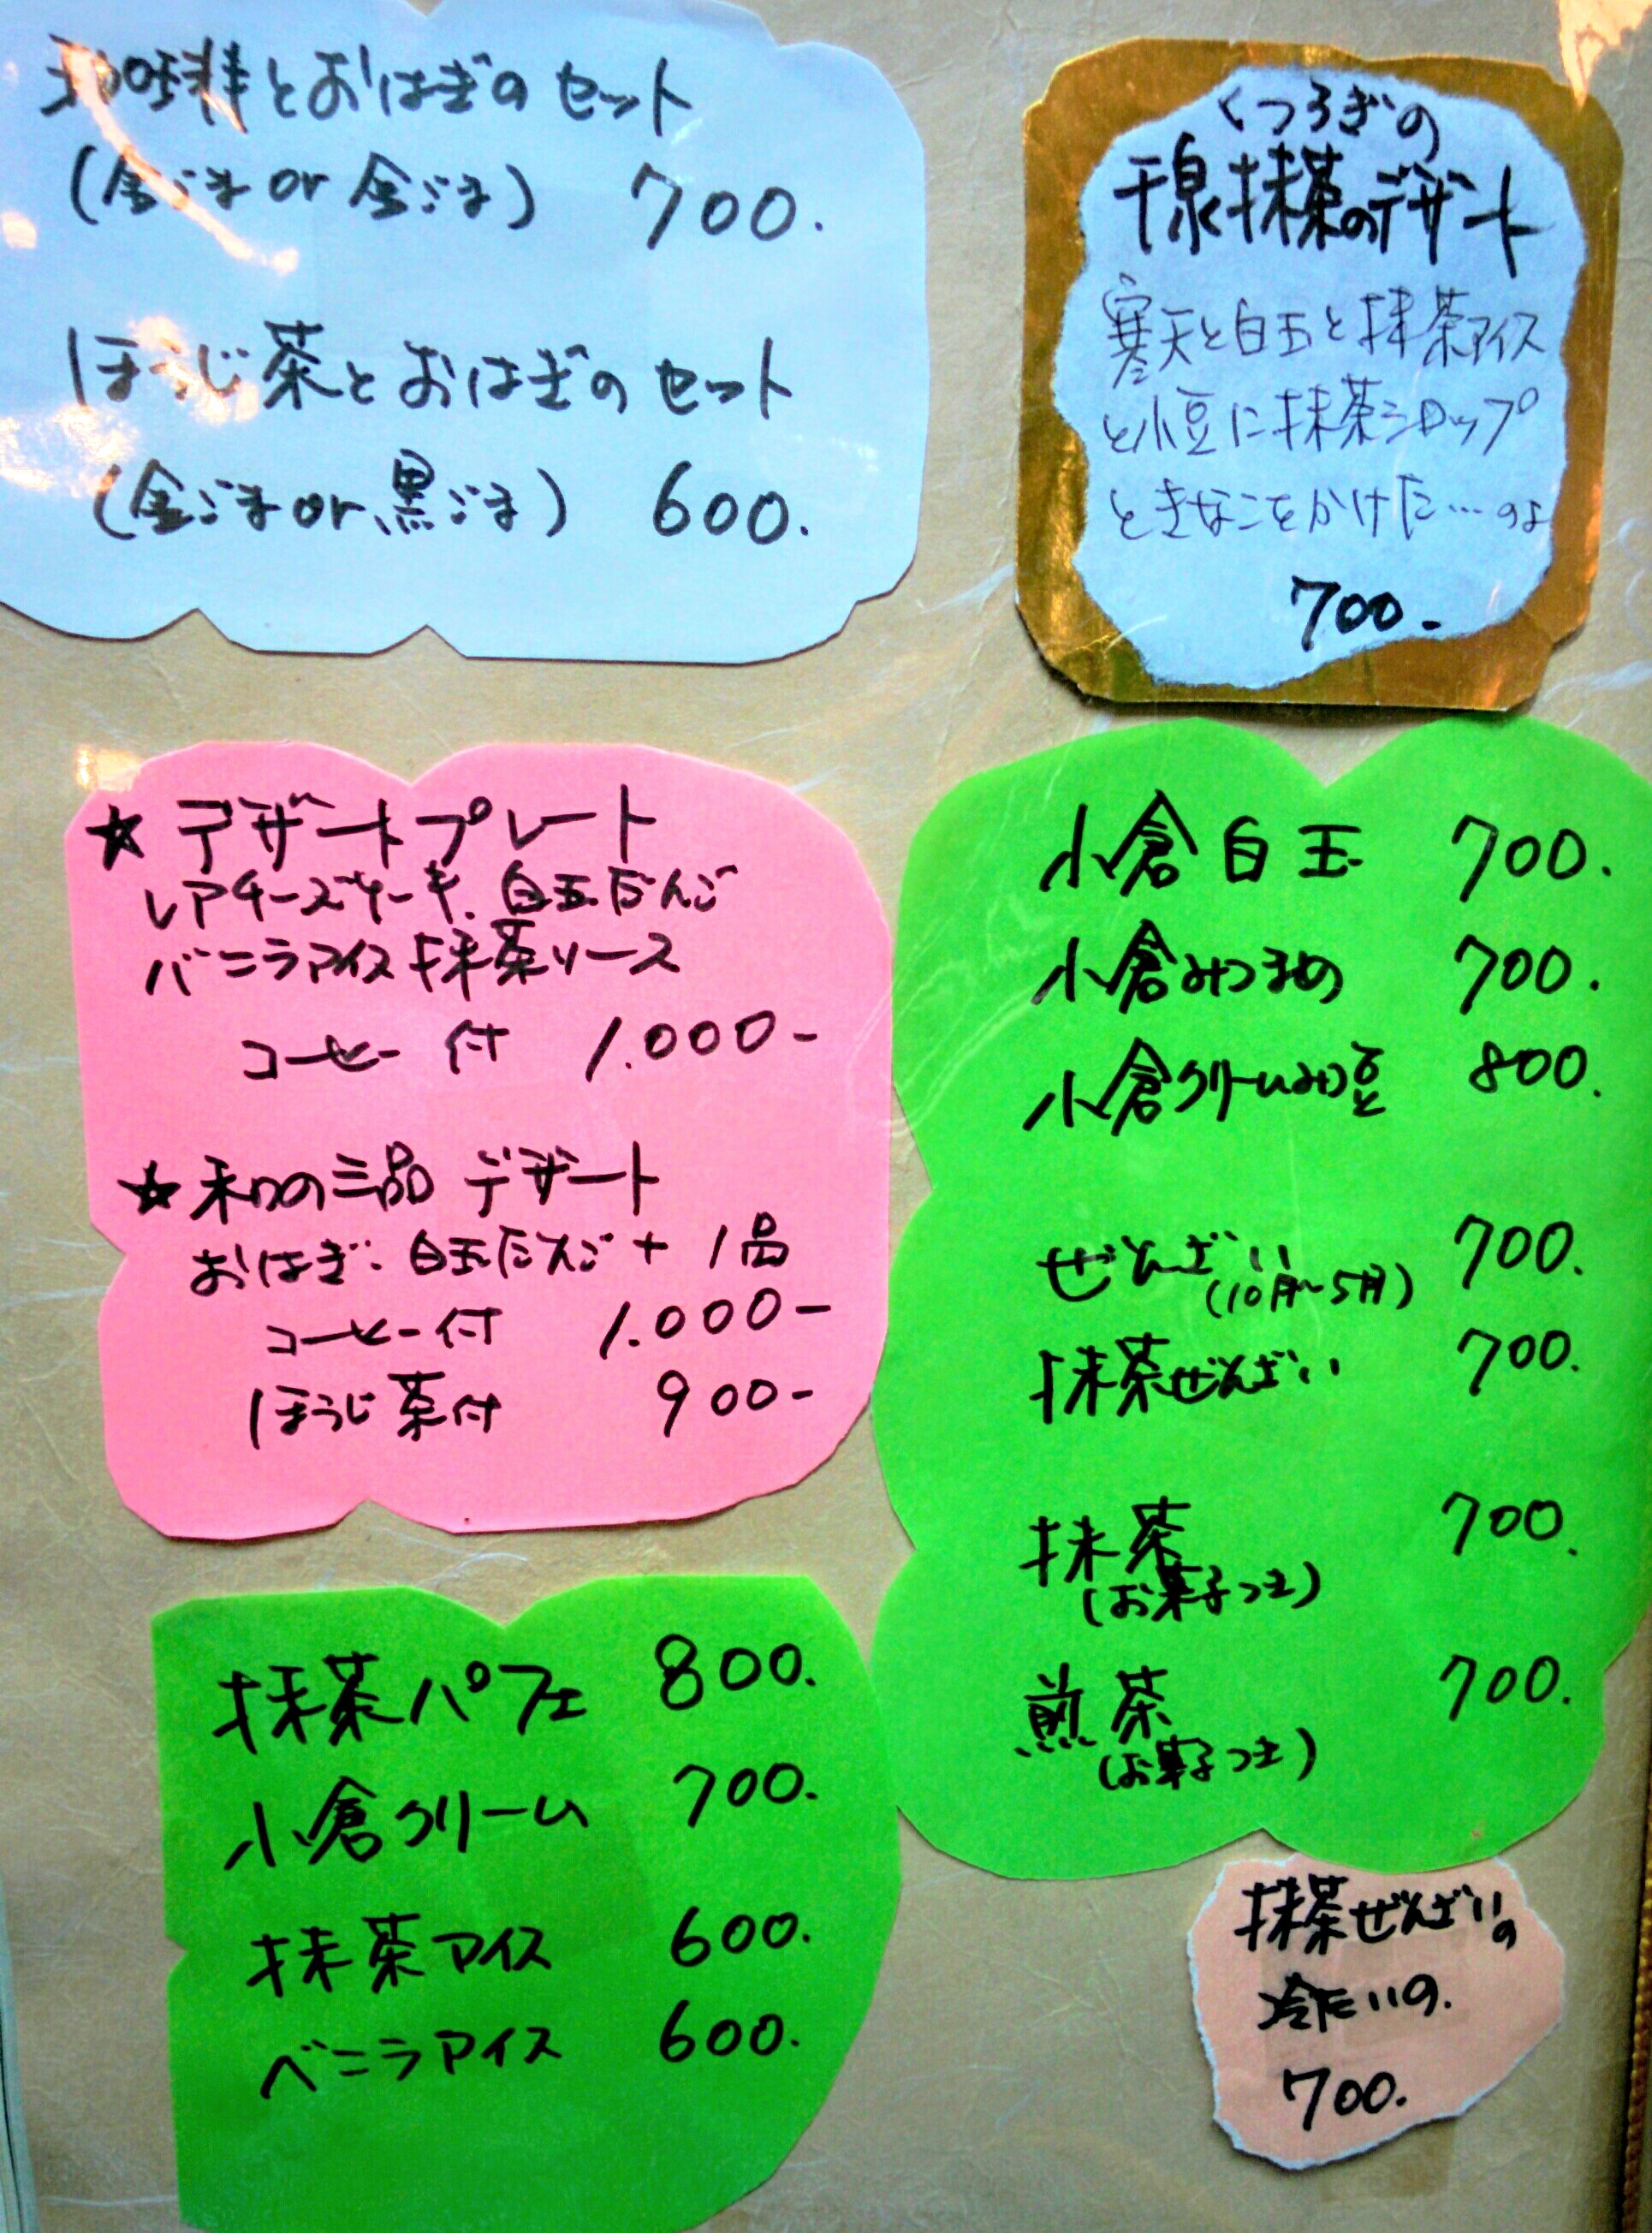 珈琲とおはぎのセット
(金ごま or 金ごま) 700.
ほうじ茶とおはぎのセット
(金ごま or 黒ごま) 600.
くつろぎの
千泉抹茶のデザート
寒天と白玉と抹茶アイス
と小豆に抹茶シロップ
ときなこをかけた…のよ
700.-
☆ デザートプレート
レアチーズケーキ、白玉だんご
バニラアイス抹茶ソース
コーヒー付 1.000-
☆ 和の三品 デザート
おはぎ・白玉だんご + 1品
コーヒー付 1.000-
ほうじ茶付 900-
小倉白玉 700.
小倉みつまめ 700.
小倉クリームみつ豆 800.
ぜんざい (10月~5月) 700.
抹茶ぜんざい 700.
抹茶 700.
(お菓子つき)
煎茶 700.
(お菓子つき)
抹茶パフェ 800.
小倉クリーム 700.
抹茶アイス 600.
バニラアイス 600.
抹茶ぜんざいの
冷たいの.
700.